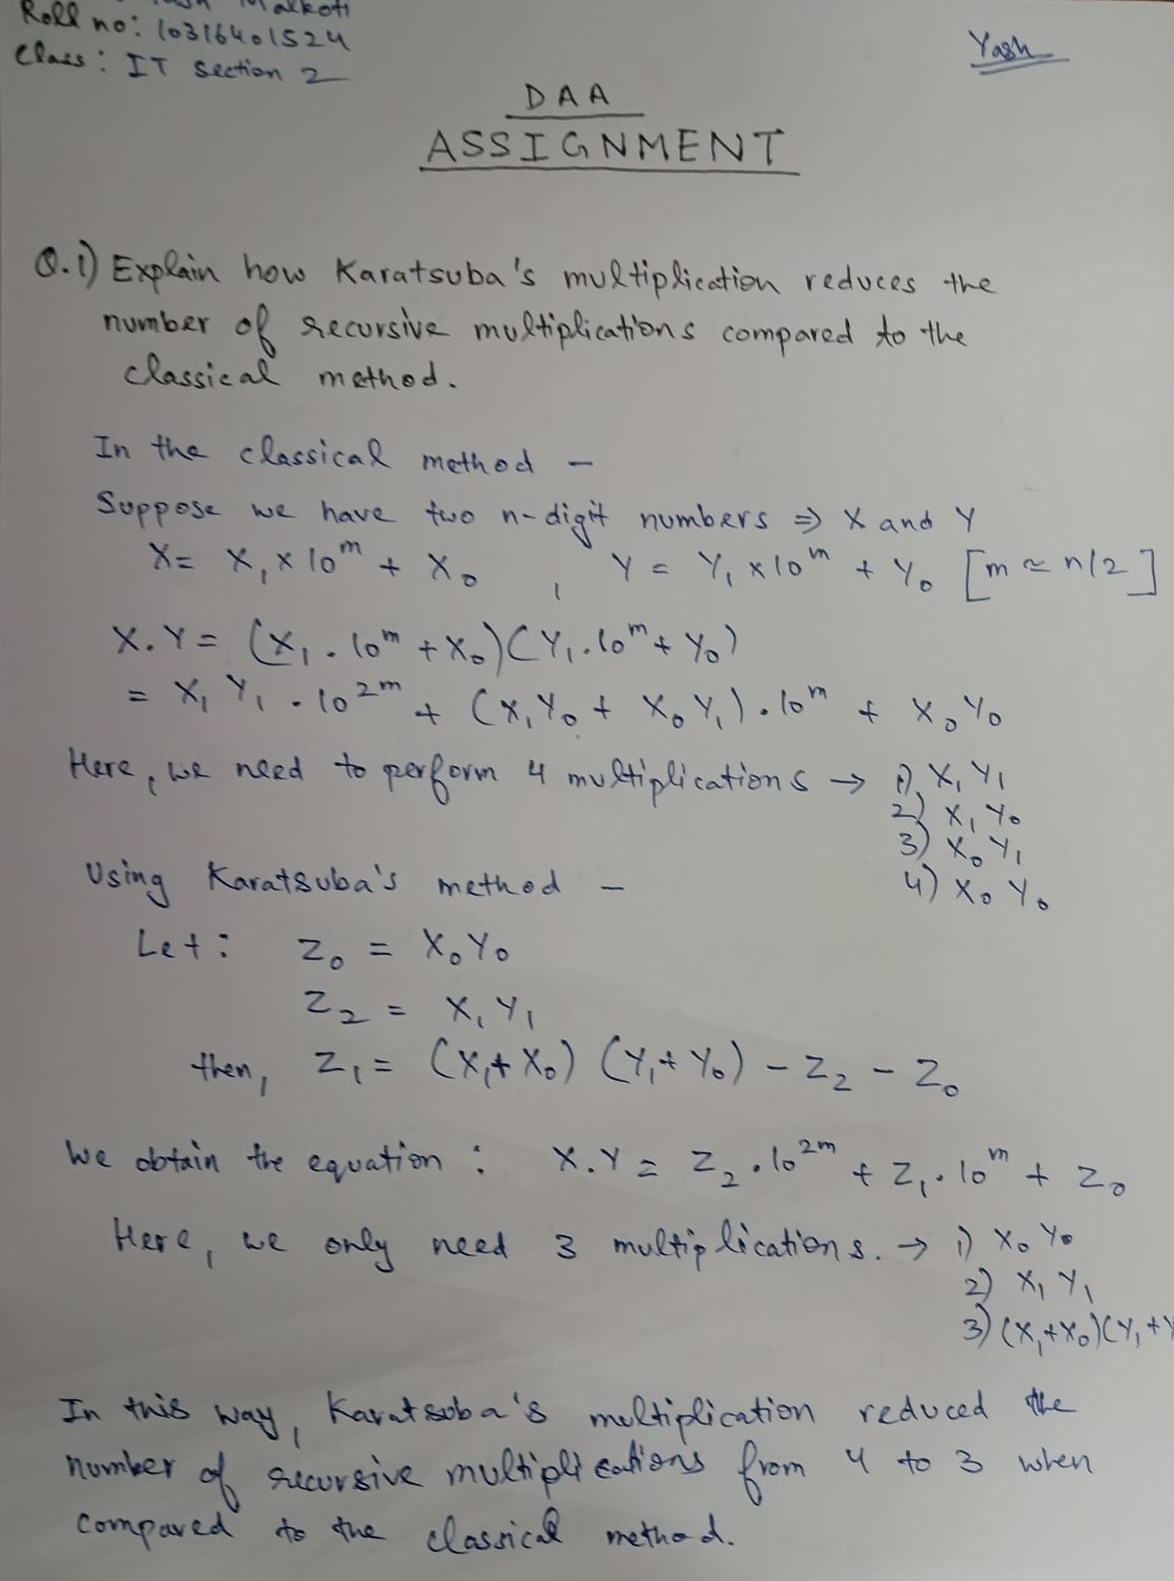 Malkoti
Roll no: 10316401524
Class: IT Section 2
Yash
DAA
ASSIGNMENT
Q.1) Explain how Karatsuba's multiplication reduces the
number of recursive multiplications compared to the
classical method.
In the classical method -
Suppose we have two n-digit numbers ⇒ X and Y
X = X₁ × 10^m + X₀ , Y = Y₁ × 10^m + Y₀ [m ≃ n/2]
X.Y = (X₁ . 10^m + X₀)(Y₁ . 10^m + Y₀)
= X₁ Y₁ . 10^2m + (X₁Y₀ + X₀Y₁) . 10^m + X₀Y₀
Here, we need to perform 4 multiplications → 1) X₁ Y₁
2) X₁ Y₀
3) X₀ Y₁
4) X₀ Y₀
Using Karatsuba's method -
Let: Z₀ = X₀Y₀
Z₂ = X₁Y₁
then, Z₁ = (X₁+X₀) (Y₁+Y₀) - Z₂ - Z₀
We obtain the equation : X.Y = Z₂ . 10^2m + Z₁ . 10^m + Z₀
Here, we only need 3 multiplications. → 1) X₀ Y₀
2) X₁ Y₁
3) (X₁+X₀)(Y₁+Y
In this way, Karatsuba's multiplication reduced the
number of recursive multiplications from 4 to 3 when
compared to the classical method.